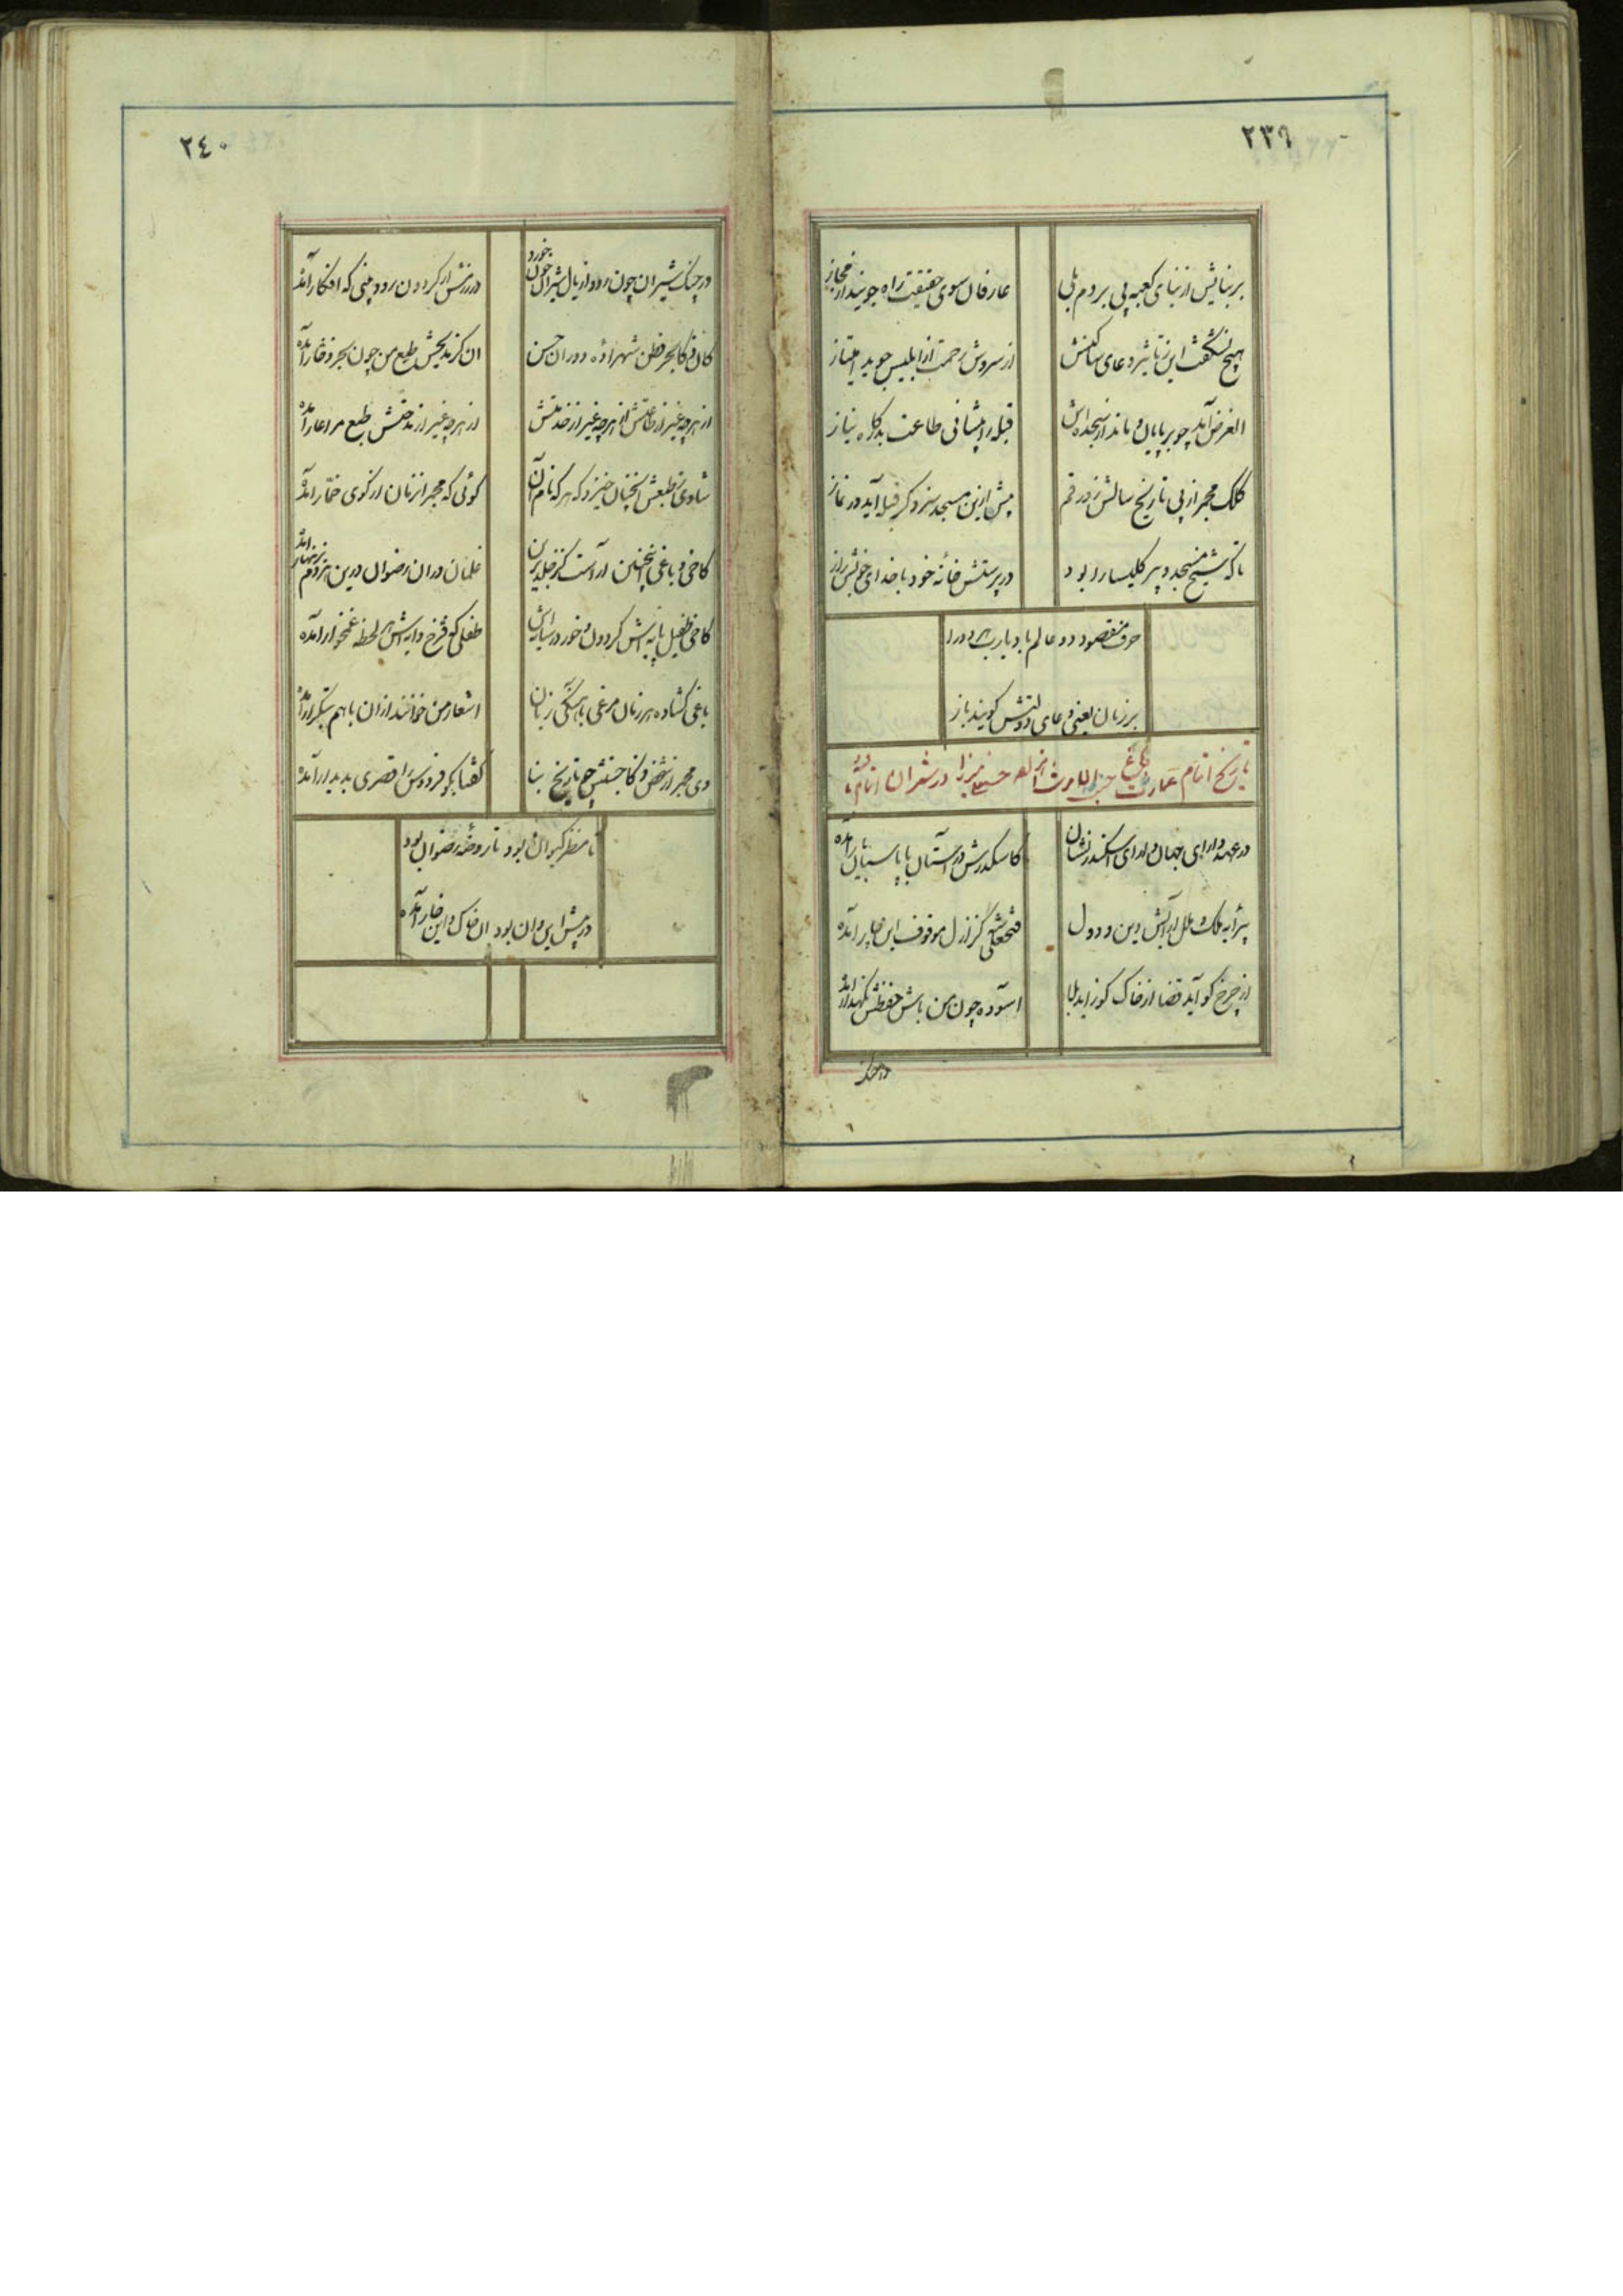 ٢٣٩
بر بنایش از بنای کعبه پی بردم بلی
عارفان سوی حقیقت راه جویند از مجاز
هیچ نشگفت این ز تاثیر دعای ساکنش
از سروش رحمت ار ابلیس جوید امتیاز
الغرض آمد چو بر پایان و ماند از سجده‌اش
قبله را پیشانی طاعت بدرگاه نیاز
کلک مجمر از پی تاریخ سالش زد رقم
پیش ازین مسجد سزد گر قبله آید در نماز
تا که شیخ مسجد و پیر کلیسا را بود
در پرستش خانه خود با خدای خویش راز
حرف مقصود دو عالم باد یارب هر دو را
بر زبان یعنی دعای دولتش گویند باز
تاریخ اتمام عمارت باغ حسینعلی میرزا در شمران
در عهد دارای جهان دارای اسکندر نشان
کاسکندرش در آستان با پاسبانان آمده
پیرایه ملک و ملل آرایش دین و دول
فتحعلی شه کز ازل موقوف این کار آمده
از چرخ کو آید قضا از خاک کو زاید بلا
آسوده چون من باش حفظش نگهدار آمده
در جنگ
٢٤٠
در جنگ شیران چون رود از یال شیران خون خورد
در رزمش ار گردون رود بینی که افکار آمده
کان کف کابحر فطن شهزاده دوران حسن
آن کز مدیحش طبع من چون بحر ذخار آمده
از هر چه غیر از طاعتش از هر چه غیر از خدمتش
از هر چه غیر از مدحتش طبع مرا عار آمده
شادی ز طبعش آنچنان خیزد که هر که نام آن
گوئی که مجمر این زمان از کوی خمار آمده
کاخی و باغی آنچنان آراست کز خلد برین
غلمان در آن رضوان درین بهر زمین
کاخی طفیل پایه‌اش گردون و خور در سایه‌اش
طفلی که فرخ دایه‌اش هر لحظه غمخوار آمده
باغی گشاده هر زمان مرغی باهنگی زبان
اشعار من خوانند از آن با هم بتکرار آمده
دی مجمر از شخص ذکا جستش چو تاریخ بنا
گفتا بگو فردوس را قصری پدیدار آمده
تا منظر کیوان بود تا روضه رضوان بود
در پیش این و آن بود آن خاک و این خار آمده